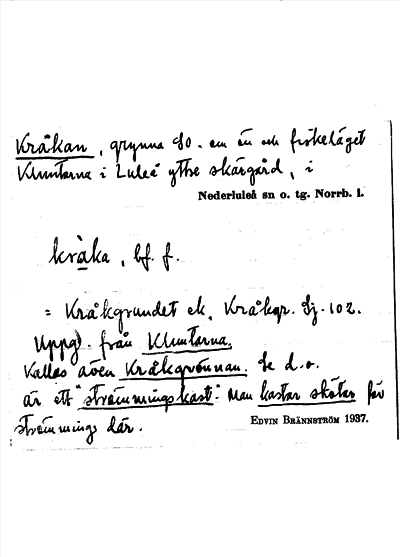 Kråkan, grynna SO. om ön och fiskeläget
Kluntarna i Luleå yttre skärgård, i
Nederluleå sn o. tg. Norrb. l.
kråka, bf. f.
= Kråkgrundet ek., Kråkgr. Sj. 102.
Uppg. från Kluntarna.
Kallas även Kråkgrönnan. Se d.o.
är ett "strömmingskast". Man kastar skötar för
strömmings där.
EDVIN BRÄNNSTRÖM 1937.